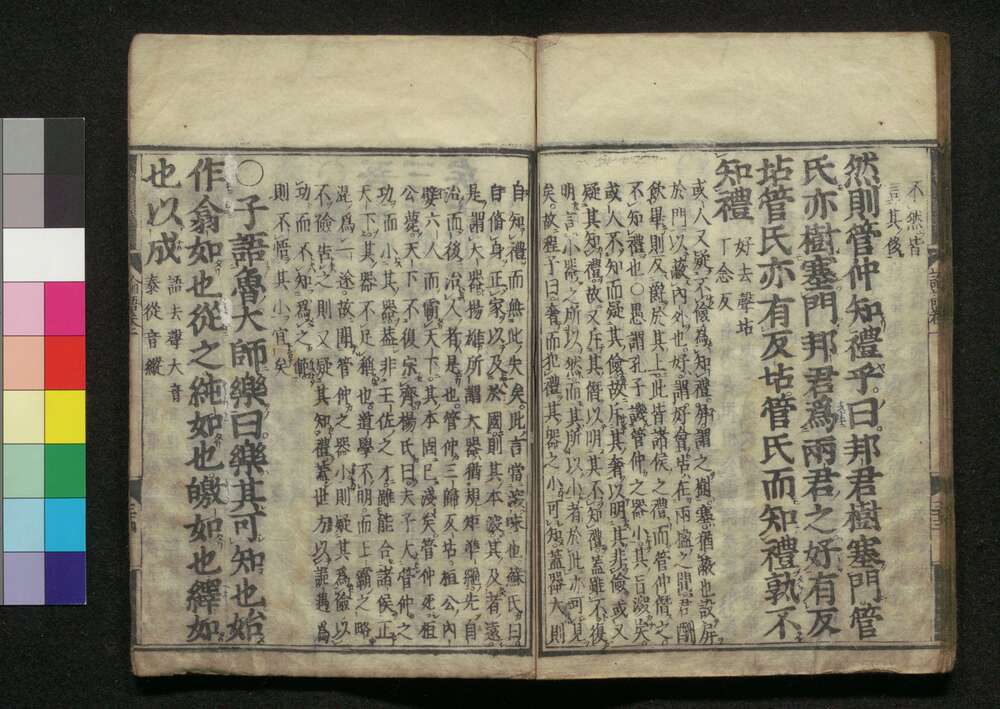 不然皆
言其侈
然則管仲知禮乎曰邦君樹塞門管
氏亦樹塞門邦君爲兩君之好有反
坫管氏亦有反坫管氏而知禮孰不
知禮
好去聲坫
丁念反
或人又疑不儉爲知禮屏謂之樹塞猶蔽也設屏
於門以蔽內外也好謂好會坫在兩楹之間獻酬
飲畢則反爵於其上此皆諸侯之禮而管仲僭之
不知禮也○愚謂孔子譏管仲之器小其旨深矣
或人不知而疑其儉故斥其奢以明其非儉或又
疑其知禮故又斥其僭以明其不知禮蓋雖不復
明言小器之所以然而其所以小者於此亦可見
矣故程子曰奢而犯禮其器之小可知蓋器大則
自知禮而無此失矣此言當深味也蘇氏曰
自脩身正家以及於國則其本深其及者遠
是謂大器揚雄所謂大器猶規矩準繩先自
治而後治人者是也管仲三歸反坫桓公內
嬖六人而霸天下其本固已淺矣管仲死桓
公薨天下不復宗齊楊氏曰夫子大管仲之
功而小其器蓋非王佐之才雖能合諸侯正
天下其器不足稱也道學不明而王霸之略
混爲一途故聞管仲之器小則疑其爲儉以
不儉告之則又疑其知禮蓋世方以詭遇爲
功而不知爲之範
則不悟其小宜矣
○子語魯大師樂曰樂其可知也始
作翕如也從之純如也皦如也繹如
也以成
語去聲大音
泰從音縱